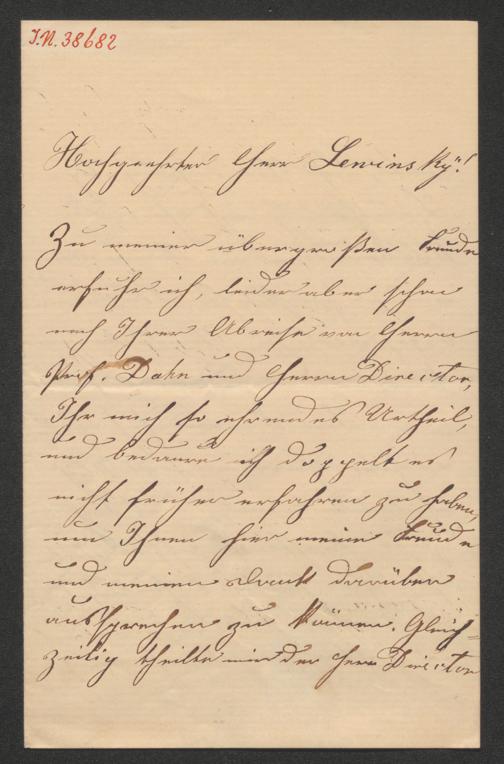 J.N. 38682
Hochgeehrter Herr Lewinsky!
Zu meiner übergroßen Freude
erfuhr ich, leider aber schon
nach Ihrer Abreise von Herrn
Prof. Dahn und Herrn Director,
Ihr mich so ehrendes Urtheil,
und bedaure ich doppelt es
nicht früher erfahren zu haben,
um Ihnen hier meine Freude
und meinen Dank darüber
aussprechen zu können. Gleich=
zeitig theilte mir der Herr Director